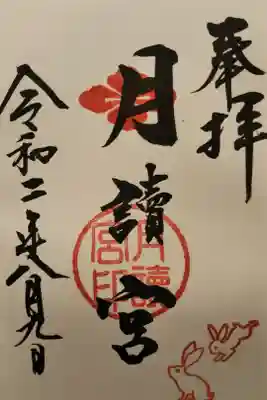 奉拝
月讀宮
月讀宮印
令和二年八月九日